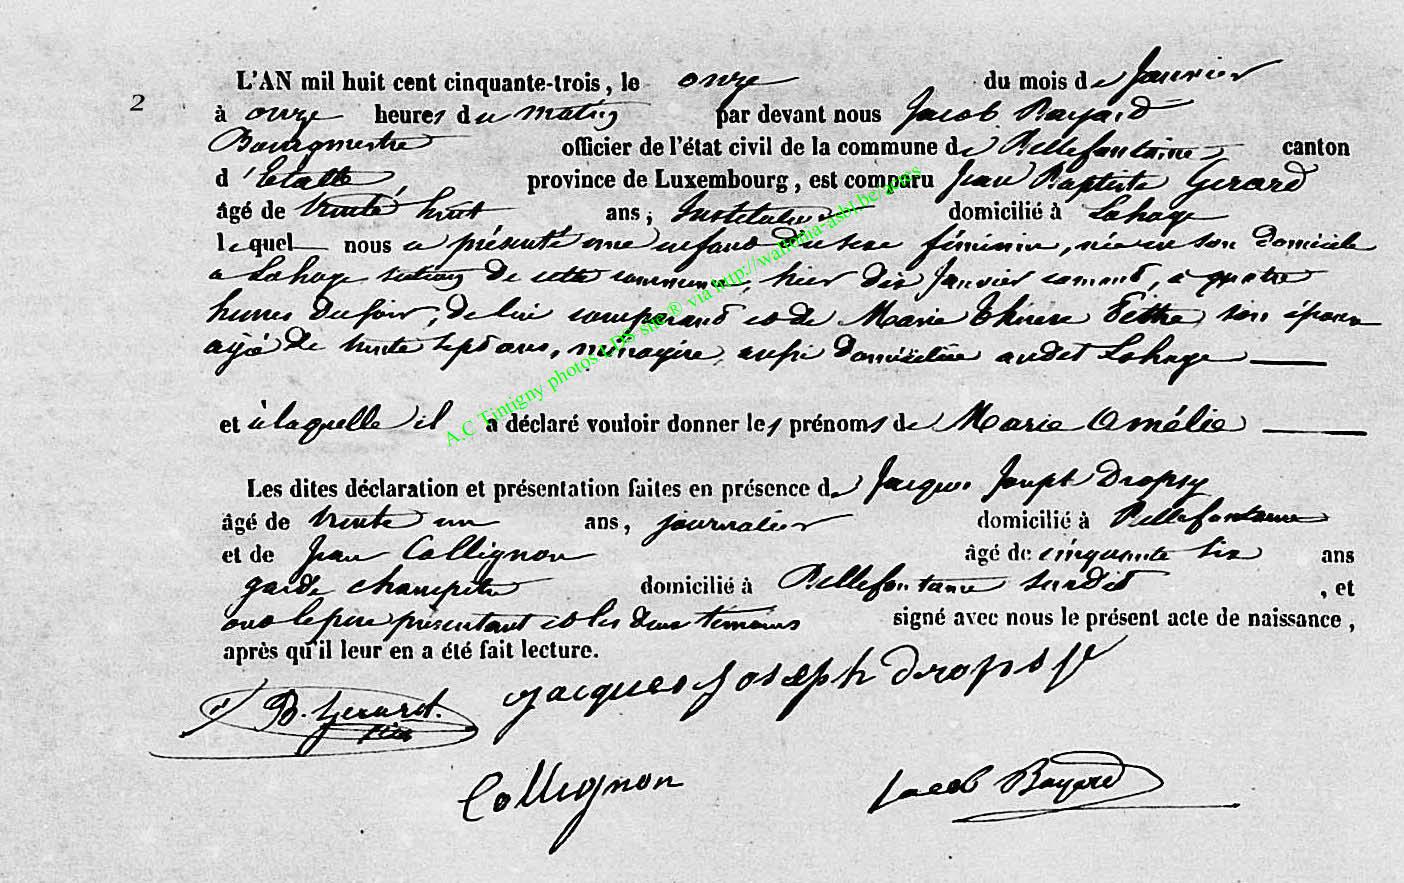 2
L'AN mil huit cent cinquante-trois, le onze du mois de Janvier
à onze heures du matin par devant nous Jacob Bayard
Bourgmestre officier de l'état civil de la commune de Bellefontaine canton
d'Etalle, province de Luxembourg, est comparu Jean Baptiste Gerard
âgé de trente huit ans, Instituteur domicilié à Lahage
lequel nous a présenté une enfant du sexe féminin, née en son domicile
a Lahage section de cette commune, hier dix Janvier courant, à quatre
heures du soir, de lui comparant et de Marie Thérese son épouse
agée de trente sept ans, ménagère, aussi domiciliée audit Lahage
et à laquelle il a déclaré vouloir donner les prénoms de Marie Amélie
Les dites déclaration et présentation faites en présence de Jacques Joseph Dropsy
âgé de trente un ans, journalier domicilié à Bellefontaine
et de Jean Collignon âgé de cinquante six ans
garde champetre domicilié à Bellefontaine susdit, et
ont le pere présentant et les deux témoins signé avec nous le présent acte de naissance,
après qu'il leur en a été fait lecture.
J B. Gerard.
jacques joseph dropsy
Collignon
Jacob Bayard
A.C Tintigny photos LDS site® via http://wallonia-asbl.be/actes